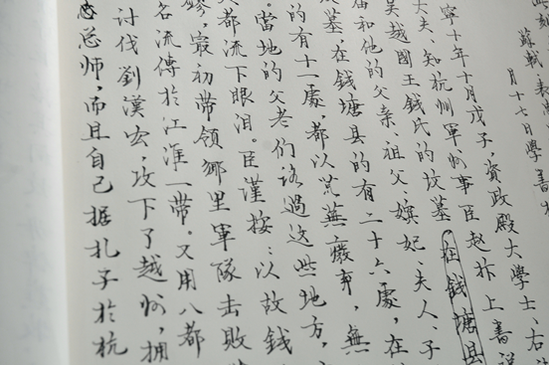 蘇軾·表
月十七日學書
寧十年十月戊子,資政殿大學士、右
大夫、知杭州軍州事臣趙抃上書說
吳越國王錢氏的故墓在錢塘县
和他的父亲、祖父、嬪妃、夫人、子
墓,在钱塘县的有二十六處,在
的有十一處,都以荒蕪廢弃,無
。當地的父老們路過這些地方,
都流下眼泪。臣謹按:以故錢
最初带领鄉里軍隊击敗
名流傳於江淮一帶。又用八都
討伐劉漢宏,攻下了越州,擁
总师,而且自己据扎子於杭